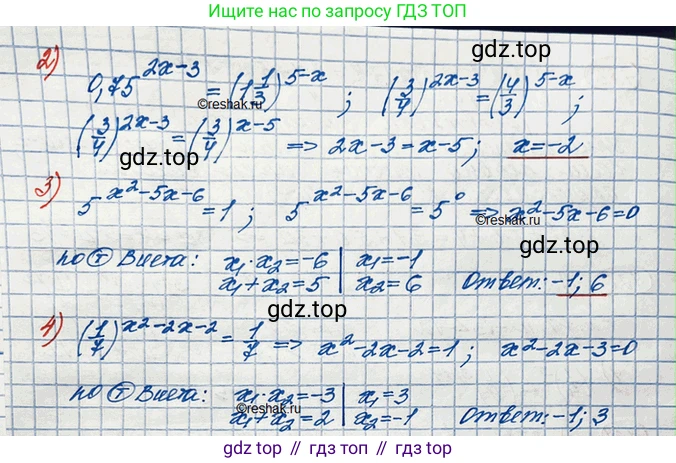 Ищите нас по запросу ГДЗ ТОП
гдз top
2) 0,75^(2x-3) = (1 1/3)^(5-x) ; (3/4)^(2x-3) = (4/3)^(5-x) ;
©reshak.ru
(3/4)^(2x-3) = (3/4)^(x-5) => 2x-3=x-5; x=-2
гдз top
©reshak.ru
3) 5^(x²-5x-6) = 1 ; 5^(x²-5x-6) = 5⁰ => x²-5x-6=0
©reshak.ru
гдз top
по т Виета: x₁·x₂=-6 | x₁=-1
x₁+x₂=5 | x₂=6 Ответ: -1; 6
гдз top
4) (1/7)^(x²-2x-2) = 1/7 => x²-2x-2=1; x²-2x-3=0
гдз top
по т Виета: x₁·x₂=-3 | x₁=3
©reshak.ru
x₁+x₂=2 | x₂=-1 Ответ: -1; 3
гдз top // гдз топ // gdz top